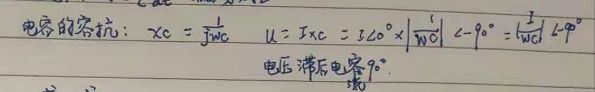 电容的容抗: xc = 1/jwc u = Ixc = I∠0° × |1/wc| ∠-90° = |I/wc| ∠-90°
电压滞后电容90°.
流